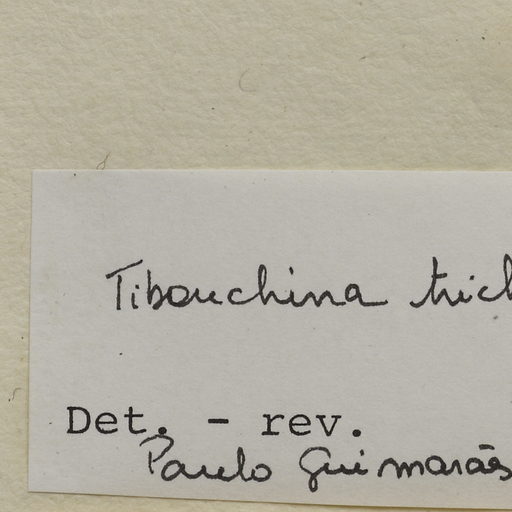 Tibouchina trich
Det. - rev.
Paulo Guimarães